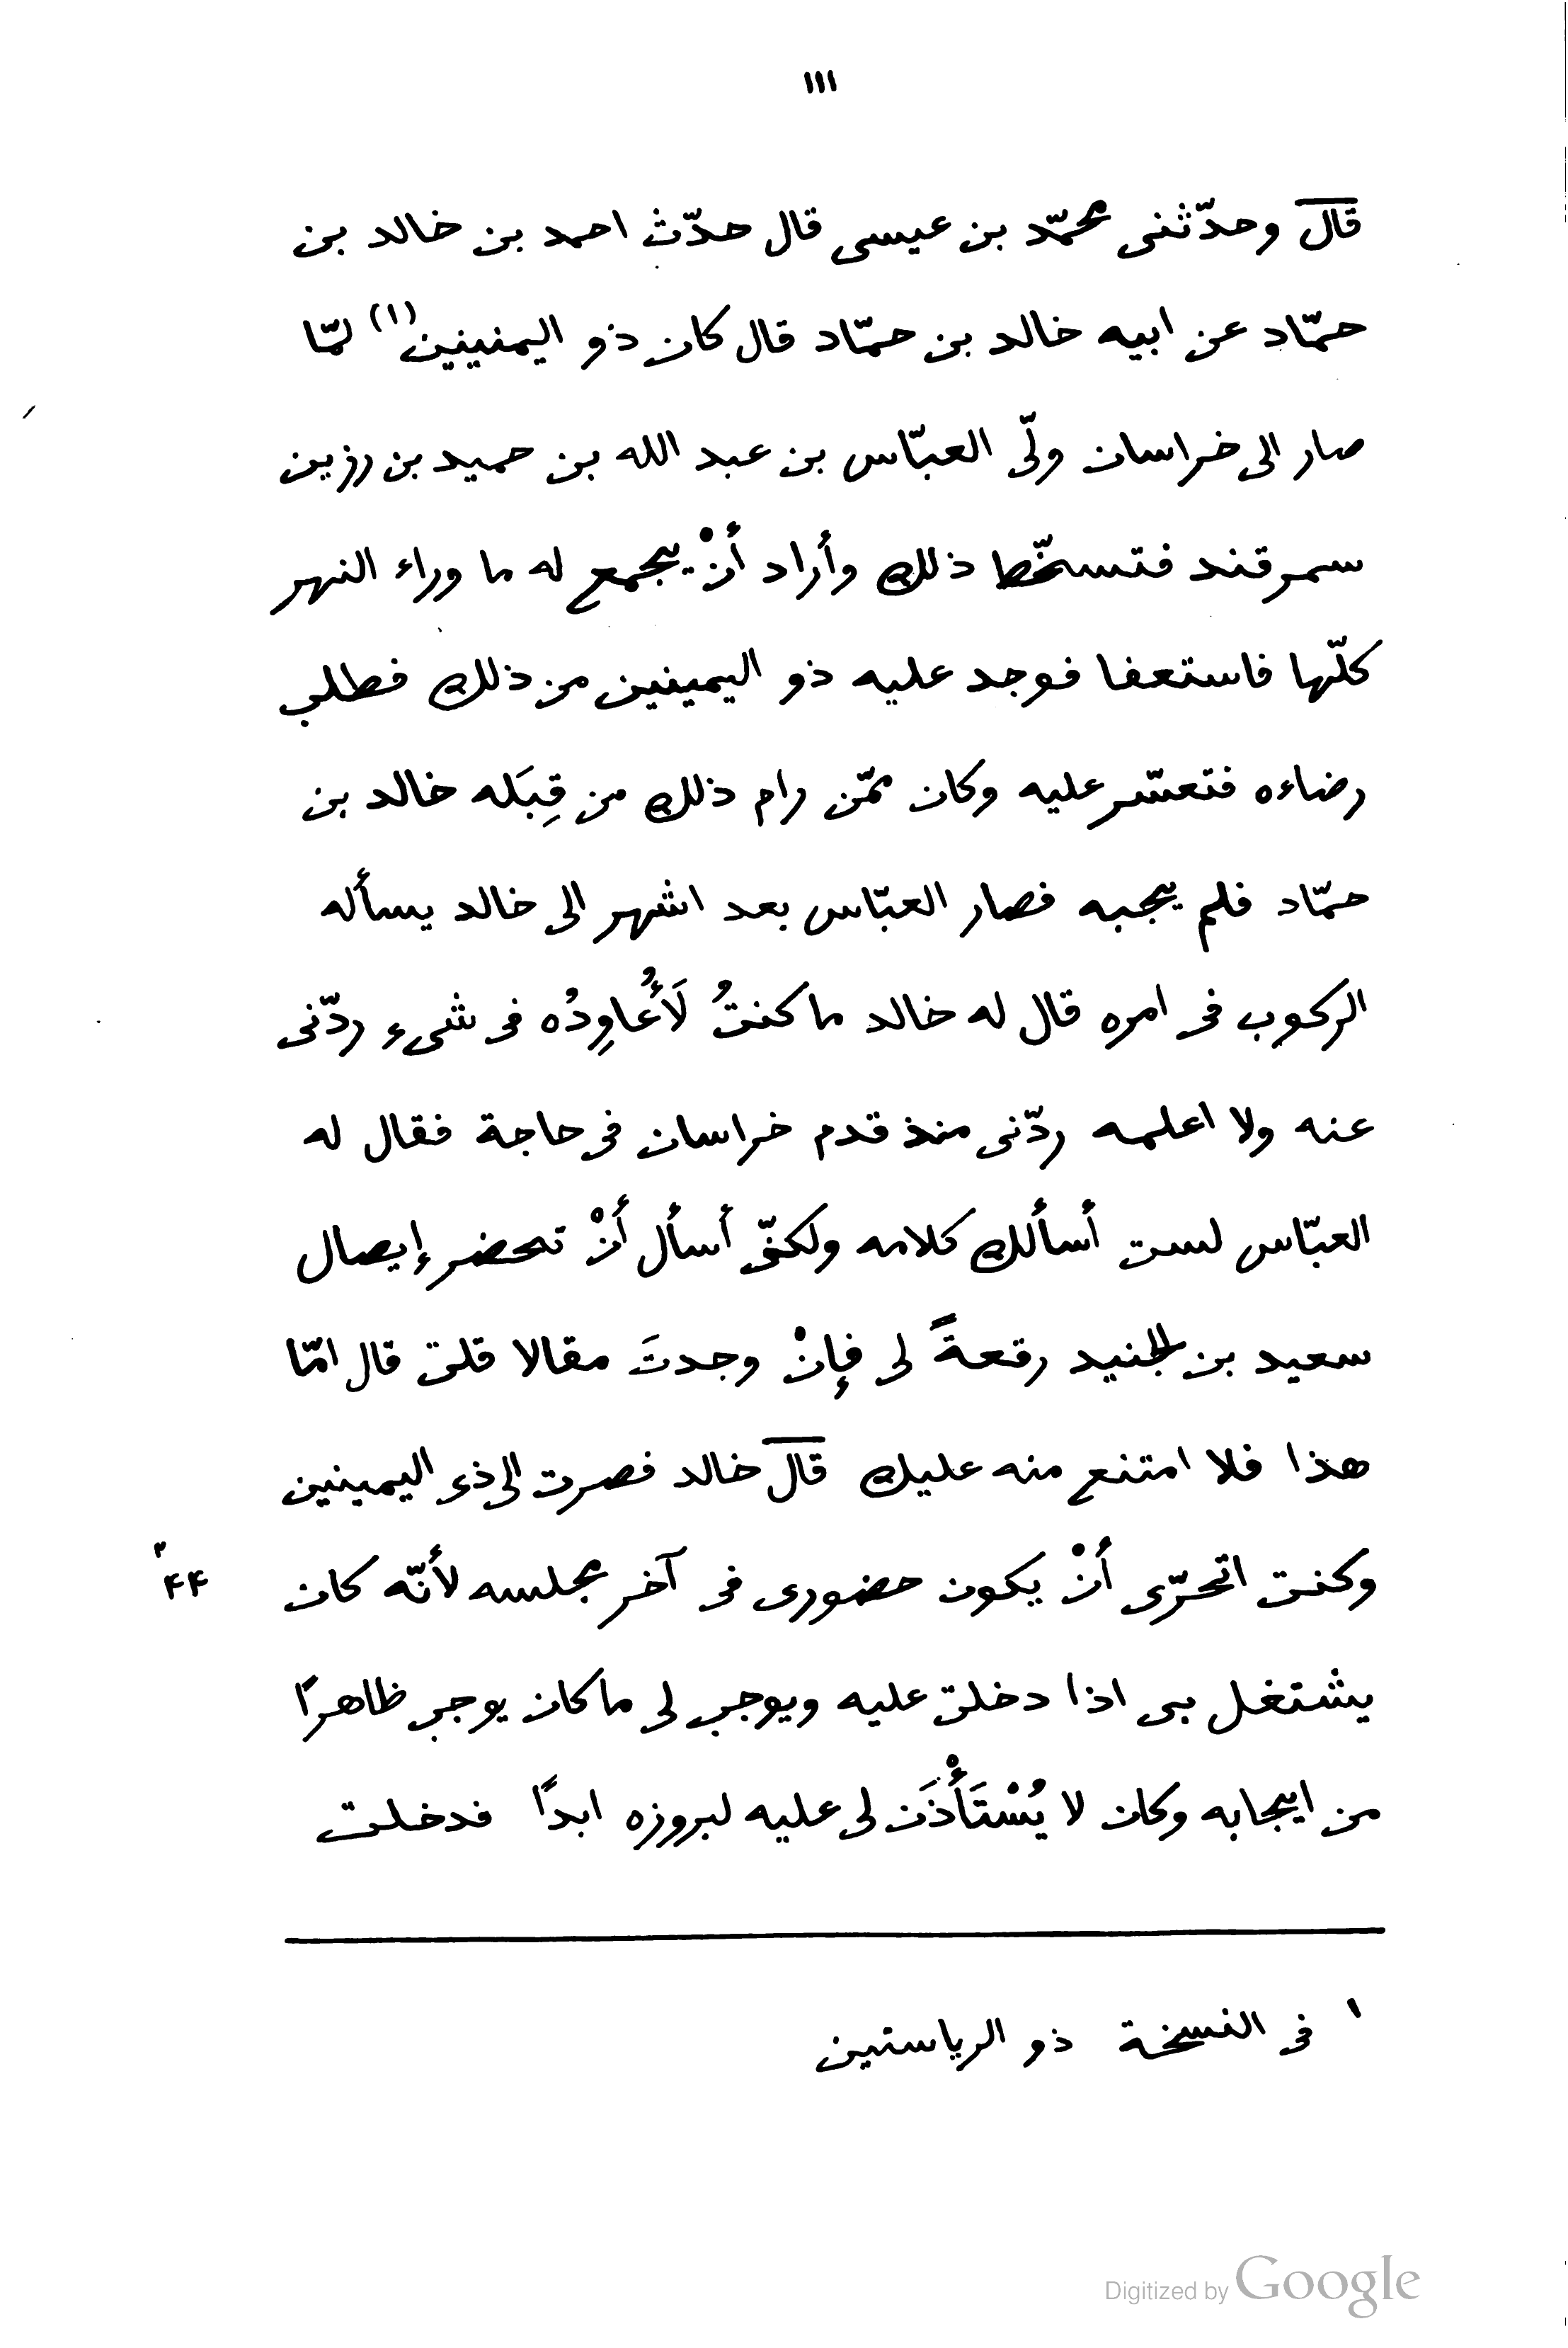 ١١١
قال وحدّثنى محمّد بن عيسى قال حدّث احمد بن خالد بن
حمّاد عن ابيه خالد بن حمّاد قال كان ذو اليمنينين(١) لمّا
صار الى خراسان ولّى العبّاس بن عبد الله بن حميد بن رزين
سمرقند فتسخّط ذلك وأراد أنْ يجمع له ما وراء النهر
كلّها فاستعفا فوجد عليه ذو اليمينين من ذلك فطلب
رضاءه فتعسّر عليه وكان ممّن رام ذلك من قِبَله خالد بن
حمّاد فلم يجبه فصار العبّاس بعد اشهر الى خالد يسأله
الركوب فى امره قال له خالد ما كنتُ لَأُعاوِدُه فى شىء ردّنى
عنه ولا اعلمه ردّنى منذ قدم خراسان فى حاجة فقال له
العبّاس لست أسألك كلامه ولكنّى أسأل أنْ تحضر إيصال
سعيد بن الجنيد رقعةً لى فإنْ وجدتَ مقالا قلت قال امّا
هذا فلا امتنع منه عليك قال خالد فصرت الى ذى اليمينين
وكنت اتحرّى أنْ يكون حضورى فى آخر مجلسه لأنّه كان
يشتغل بى اذا دخلت عليه ويوجب لى ما كان يوجب ظاهرًا
من ايجابه وكان لا يُسْتَأْذَن لى عليه لبروزه ابدًا فدخلت
١ فى النسخة ذو الرياستين
Digitized by Google